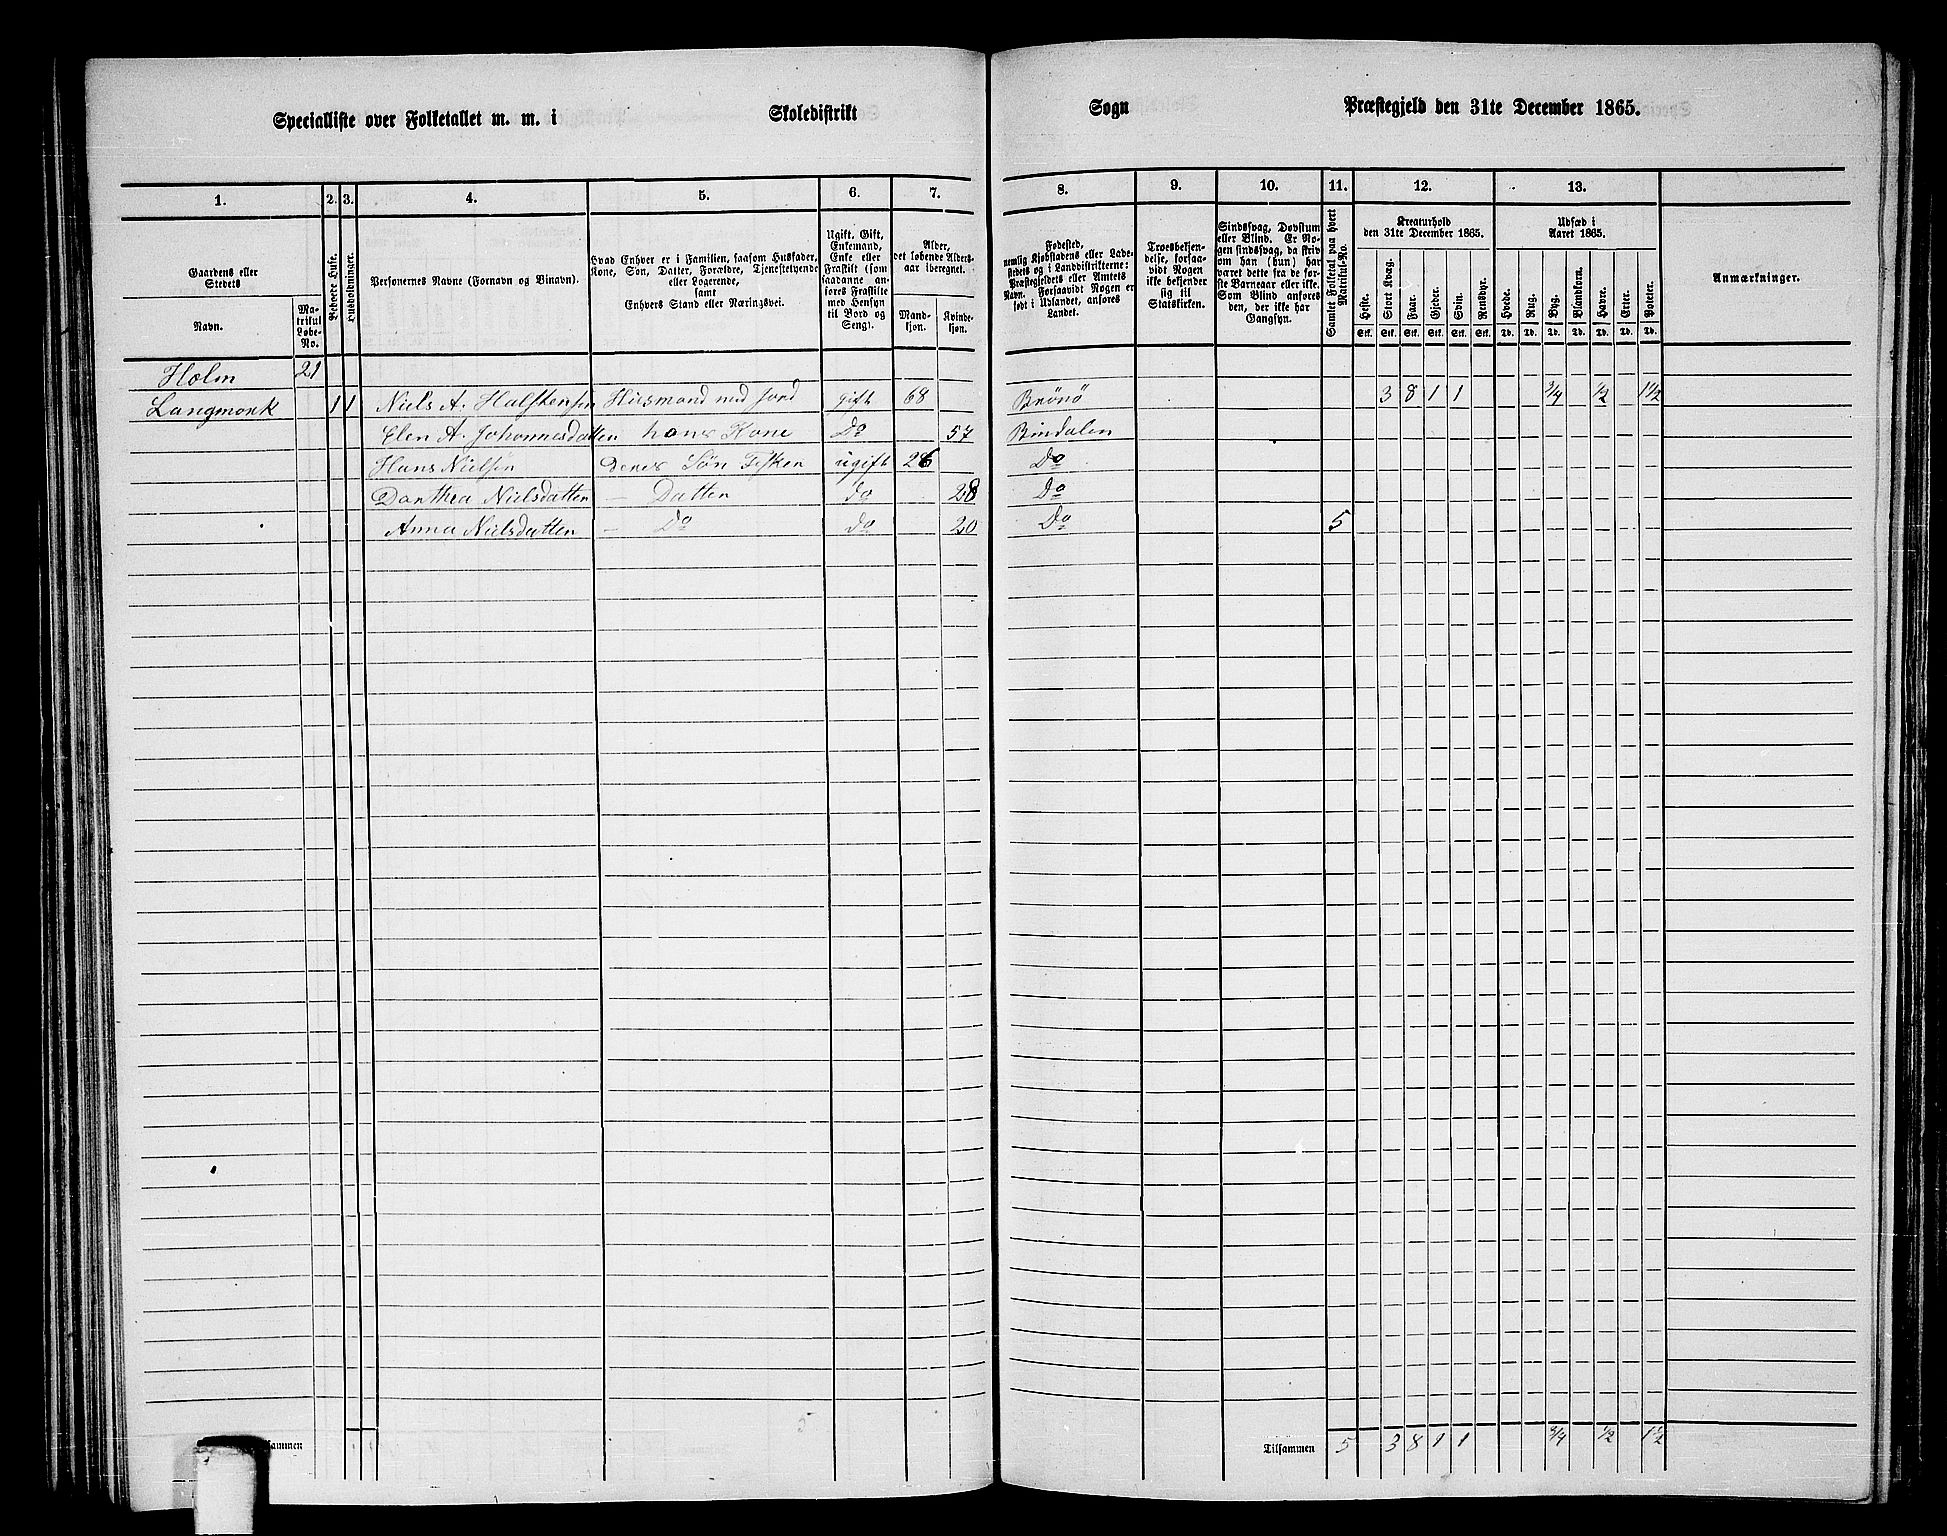 Specialliste over Folketallet m. m. i Skoledistrikt Sogn Præstegjeld den 31te December 1865.
1. 2. 3. 4. 5. 6. 7. 8. 9. 10. 11. 12. 13.
Gaardens eller Stedets
Navn.
Matrikul Løbe-No.
Beboede Huse.
Husholdninger.
Personernes Navne (Fornavn og Binavn).
Hvad Enhver er i Familien, saasom Husfader, Kone, Søn, Datter, Forældre, Tjenestetyende eller Logerende,
samt
Enhvers Stand eller Næringsvei.
Ugift, Gift, Enkemand, Enke eller Fraskilt (som saadanne anføres Fraskilte med Hensyn til Bord og Seng).
Alder, det løbende Aldersaar iberegnet.
Mandkjøn.
Kvindekjøn.
Fødested, nemlig Kjøbstadens eller Ladestedets og i Landdistrikterne: Præstegjeldets eller Amtets Navn. Forsaavidt Nogen er født i Udlandet, anføres Landet.
Troesbekjendelse, forsaavidt Nogen ikke bekjender sig til Statskirken.
Sindssvag, Døvstum eller Blind. Er Nogen sindssvag, da skriv om han (hun) har været dette fra de første Barneaar eller ikke. Som Blind anføres den, der ikke har Gangsyn.
Samlet Folketal paa hvert Matrikul-No.
Kreaturhold den 31te December 1865.
Heste. Stort Kvæg. Faar. Gjeder. Svin. Rensdyr.
Stk. Stk. Stk. Stk. Stk. Stk.
Udsæd i Aaret 1865.
Hvede. Rug. Byg. Blandkorn. Havre. Erter. Poteter.
Td. Td. Td. Td. Td. Td. Td.
Anmærkninger.
Holm 21
Langmork 1 1 Niels A. Halstensen Huusmand med Jord gift 68 Brönö 3 8 1 1 3/4 1/2 1 1/2
Elen A. Johannesdatter hans Kone Do 57 Bindalen
Hans Nielsen Deres Søn Fisker ugift 26 Do
Dorthea Nielsdatter — Datter do 28 Do
Anna Nielsdatter — Do do 20 Do 5
5
Tilsammen 5 3 8 1 1 3/4 1/2 1 1/2